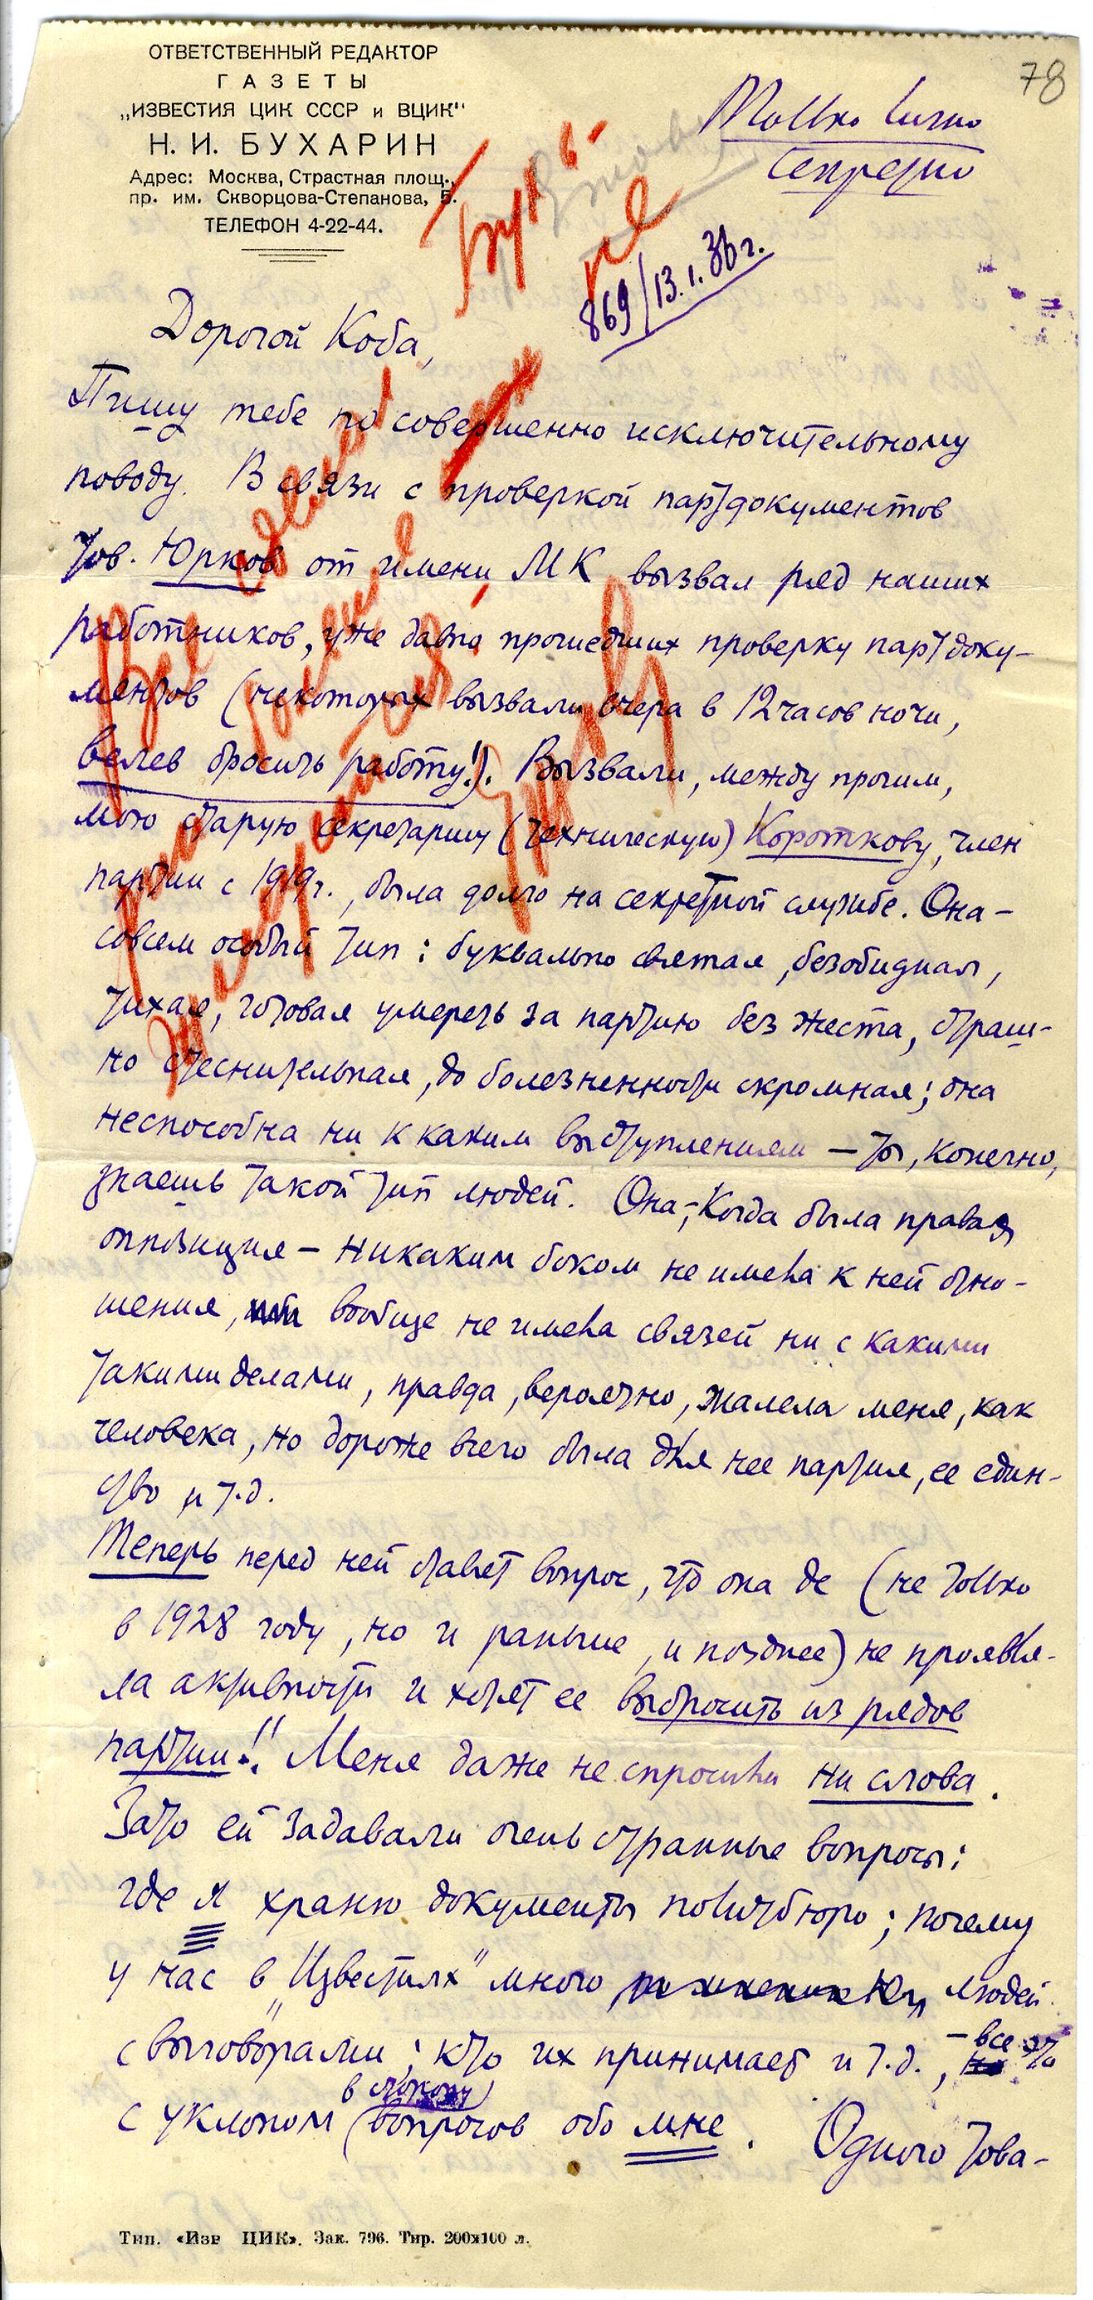 78
ОТВЕТСТВЕННЫЙ РЕДАКТОР
ГАЗЕТЫ
„ИЗВЕСТИЯ ЦИК СССР и ВЦИК“
Н. И. БУХАРИН
Адрес: Москва, Страстная площ.,
пр. им. Скворцова-Степанова, 5.
ТЕЛЕФОН 4-22-44.
Только лично
Секретно
869/13.1.36 г.
Дорогой Коба,
Пишу тебе по совершенно исключительному
поводу. В связи с проверкой партдокументов
тов. Юрков от имени МК вызвал ряд наших
работников, уже давно прошедших проверку партдоку-
ментов (некоторых вызвали вчера в 12 часов ночи,
велев бросить работу!). Вызвали, между прочим,
мою старую секретаршу (техническую) Короткову, член
партии с 1919 г., была долго на секретной службе. Она –
совсем особый тип: буквально святая, безобидная,
тихая, готовая умереть за партию без жеста, страш-
но стеснительная, до болезненности скромная; она
неспособна ни к каким выступлениям – ты, конечно,
знаешь такой тип людей. Она, – когда была правая
оппозиция – никаким боком не имела к ней отно-
шения, вообще не имела связей ни с какими
такими делами, правда, вероятно, жалела меня, как
человека, но дороже всего была для нее партия, ее един-
ство и т.д.
Теперь перед ней ставят вопрос, что она де (не только
в 1928 году, но и раньше, и позднее) не проявля-
ла активности и хотят ее выбросить из рядов
партии!! Меня даже не спросили ни слова.
Зато ей задавали очень странные вопросы:
где я храню документы политбюро; почему
у нас в „Известиях“ много людей
с выговорами; кто их принимает и т.д., – все это
с уклоном в сторону вопросов обо мне. Одного това-
Тип. «Изв ЦИК». Зак. 796. Тир. 200х100 л.